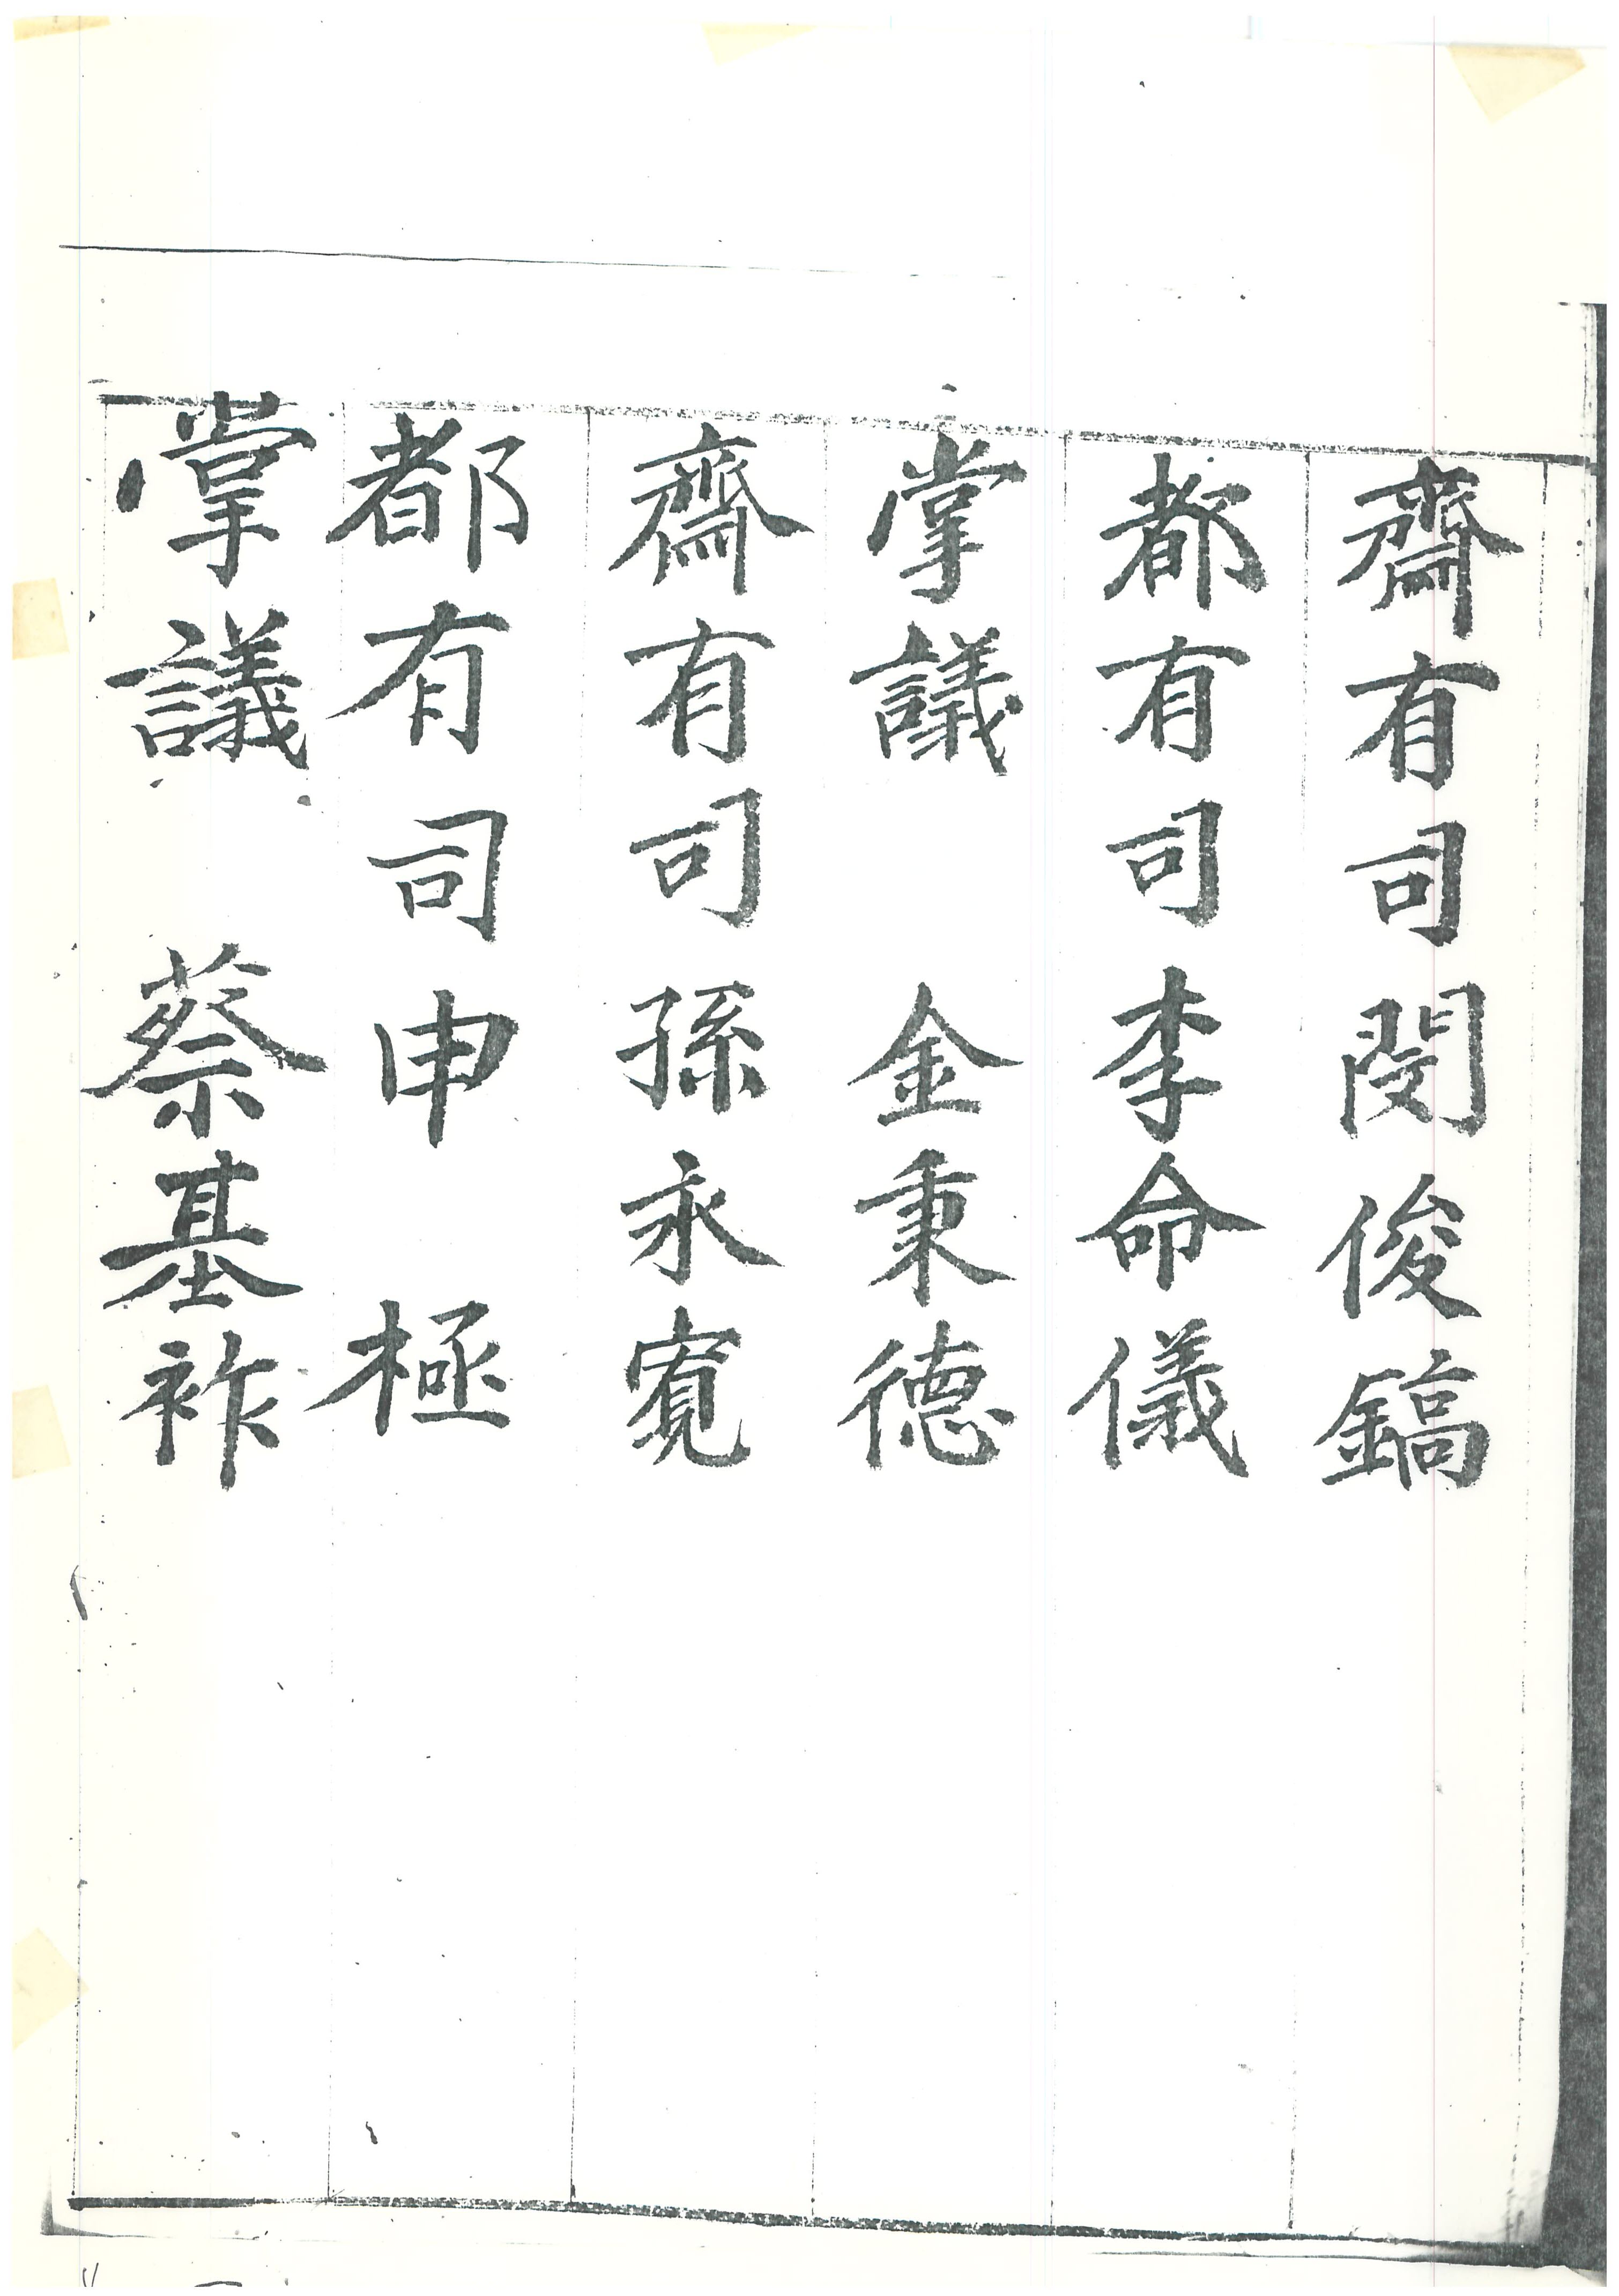 齋有司閔俊鎬
都有司李命儀
掌議 金秉德
齋有司孫永寬
都有司申 極
掌議 蔡基祚